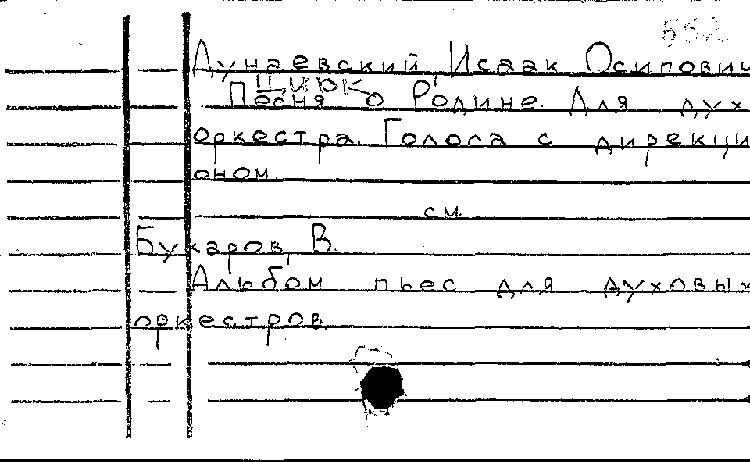 Дунаевский, Исаак Осипович
"Цирк"
Песня о Родине. Для дух.
оркестра. Голоса с дирекци
оном.
см.
Букаров, В.
Альбом пьес для духовых
оркестров.